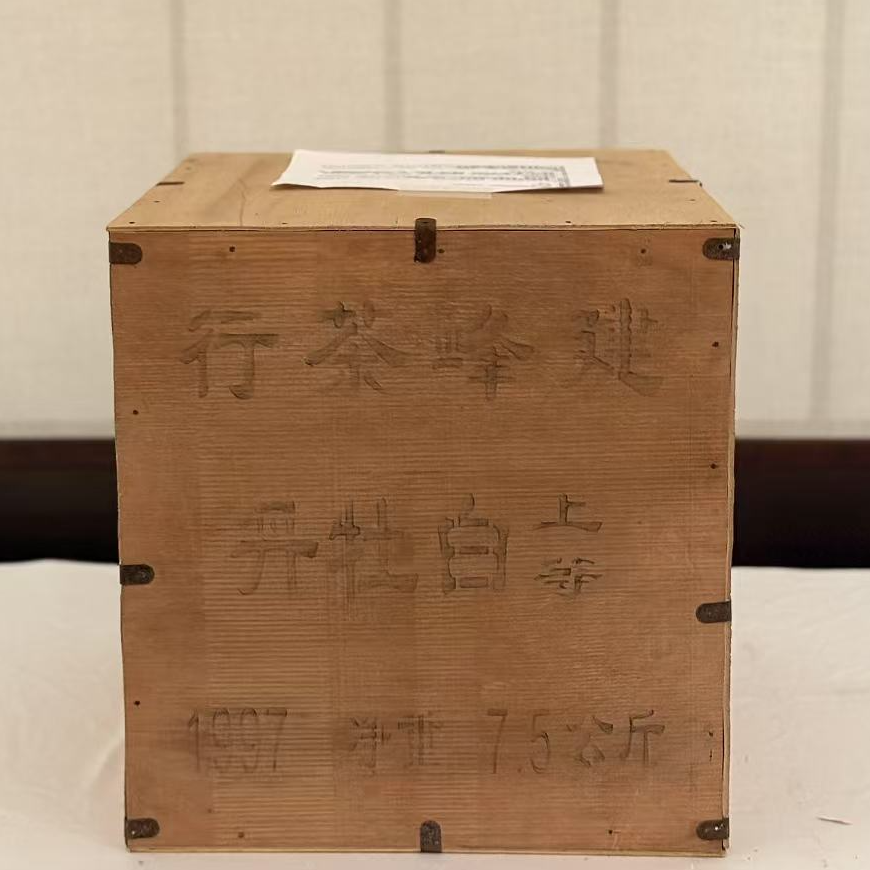 建峰茶行
上等白牡丹
1997 净重 7.5公斤